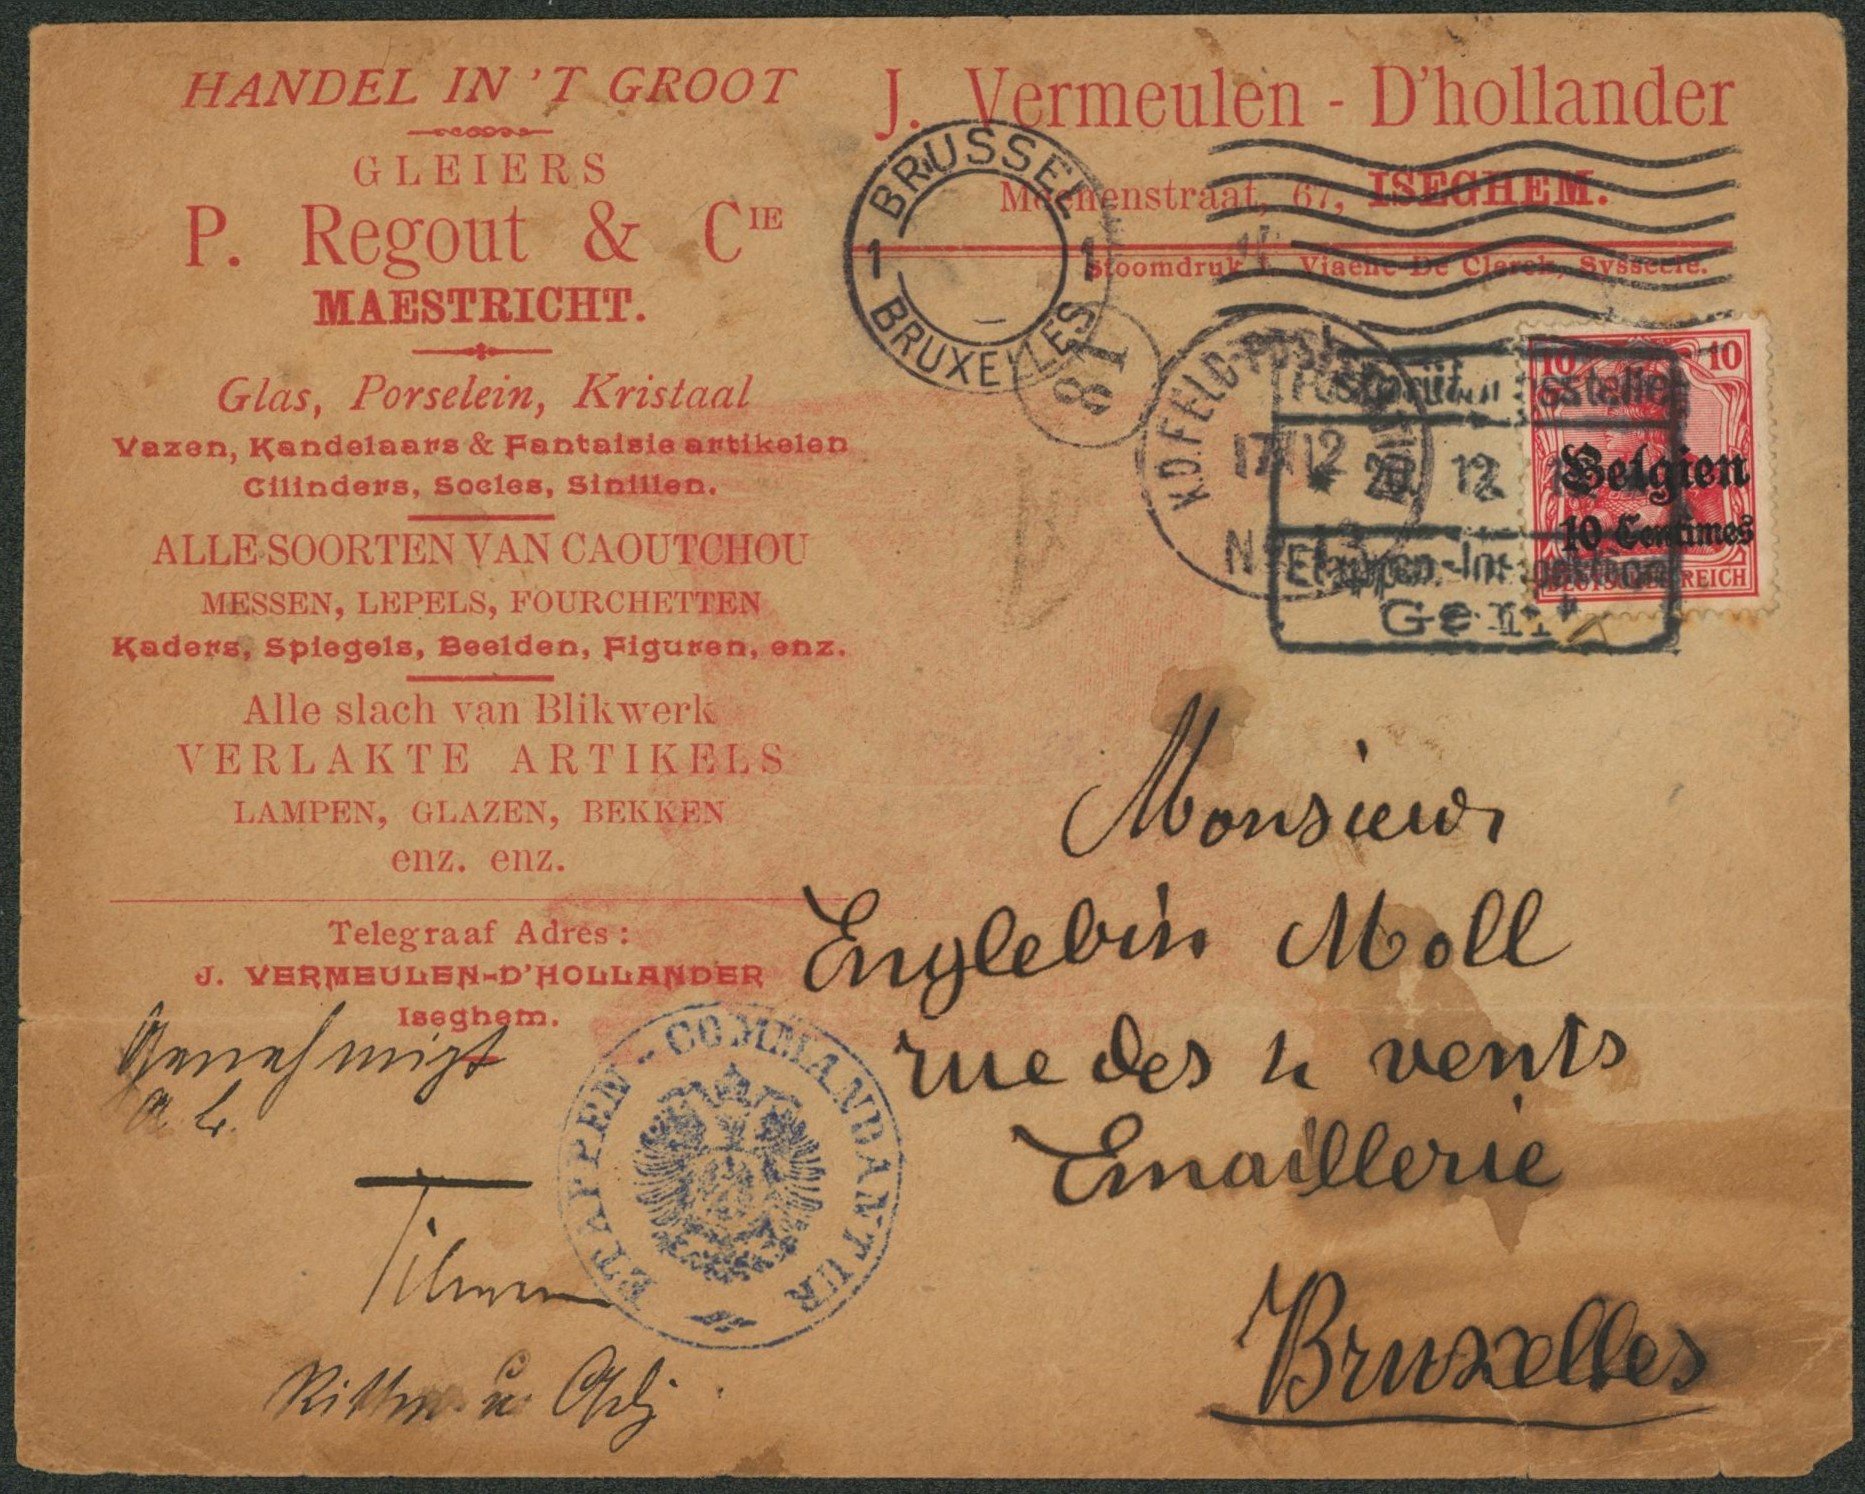 HANDEL IN 'T GROOT
GLEIERS
P. Regout & CIE
MAESTRICHT.
Glas, Porselein, Kristaal
Vazen, Kandelaars & Fantaisie artikelen
Cilinders, Socles, Sinillen.
ALLE SOORTEN VAN CAOUTCHOU
MESSEN, LEPELS, FOURCHETTEN
Kaders, Spiegels, Beelden, Figuren, enz.
Alle slach van Blikwerk
VERLAKTE ARTIKELS
LAMPEN, GLAZEN, BEKKEN
enz. enz.
Telegraaf Adres :
J. VERMEULEN-D'HOLLANDER
Iseghem.
J. Vermeulen - D'hollander
Meenenstraat, 67, ISEGHEM.
Stoomdruk Viaene-De Clerck, Sysseele.
BRUSSEL
1 1
BRUXELLES
81
K.D.FELD-POST
17 12
N
Postprüfungsstelle
20. 12.
Etappen-Inspektion
Gent
10 10
Belgien
10 Centimes
DEUTSCHES REICH
Monsieur
Englebin Moll
rue des 4 vents
Emaillerie
Bruxelles
Genehmigt
ETAPPEN-COMMANDANTUR
Rittm. u.